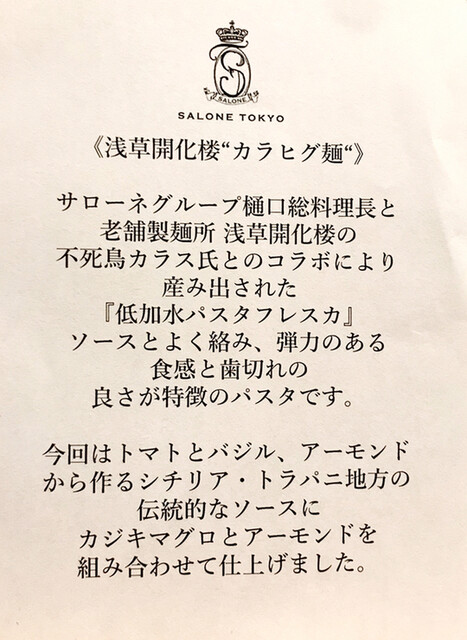 SALONE
SALONE TOKYO
《浅草開化楼“カラヒグ麺“》
サローネグループ樋口総料理長と
老舗製麺所 浅草開化楼の
不死鳥カラス氏とのコラボにより
産み出された
『低加水パスタフレスカ』
ソースとよく絡み、弾力のある
食感と歯切れの
良さが特徴のパスタです。
今回はトマトとバジル、アーモンド
から作るシチリア・トラパニ地方の
伝統的なソースに
カジキマグロとアーモンドを
組み合わせて仕上げました。